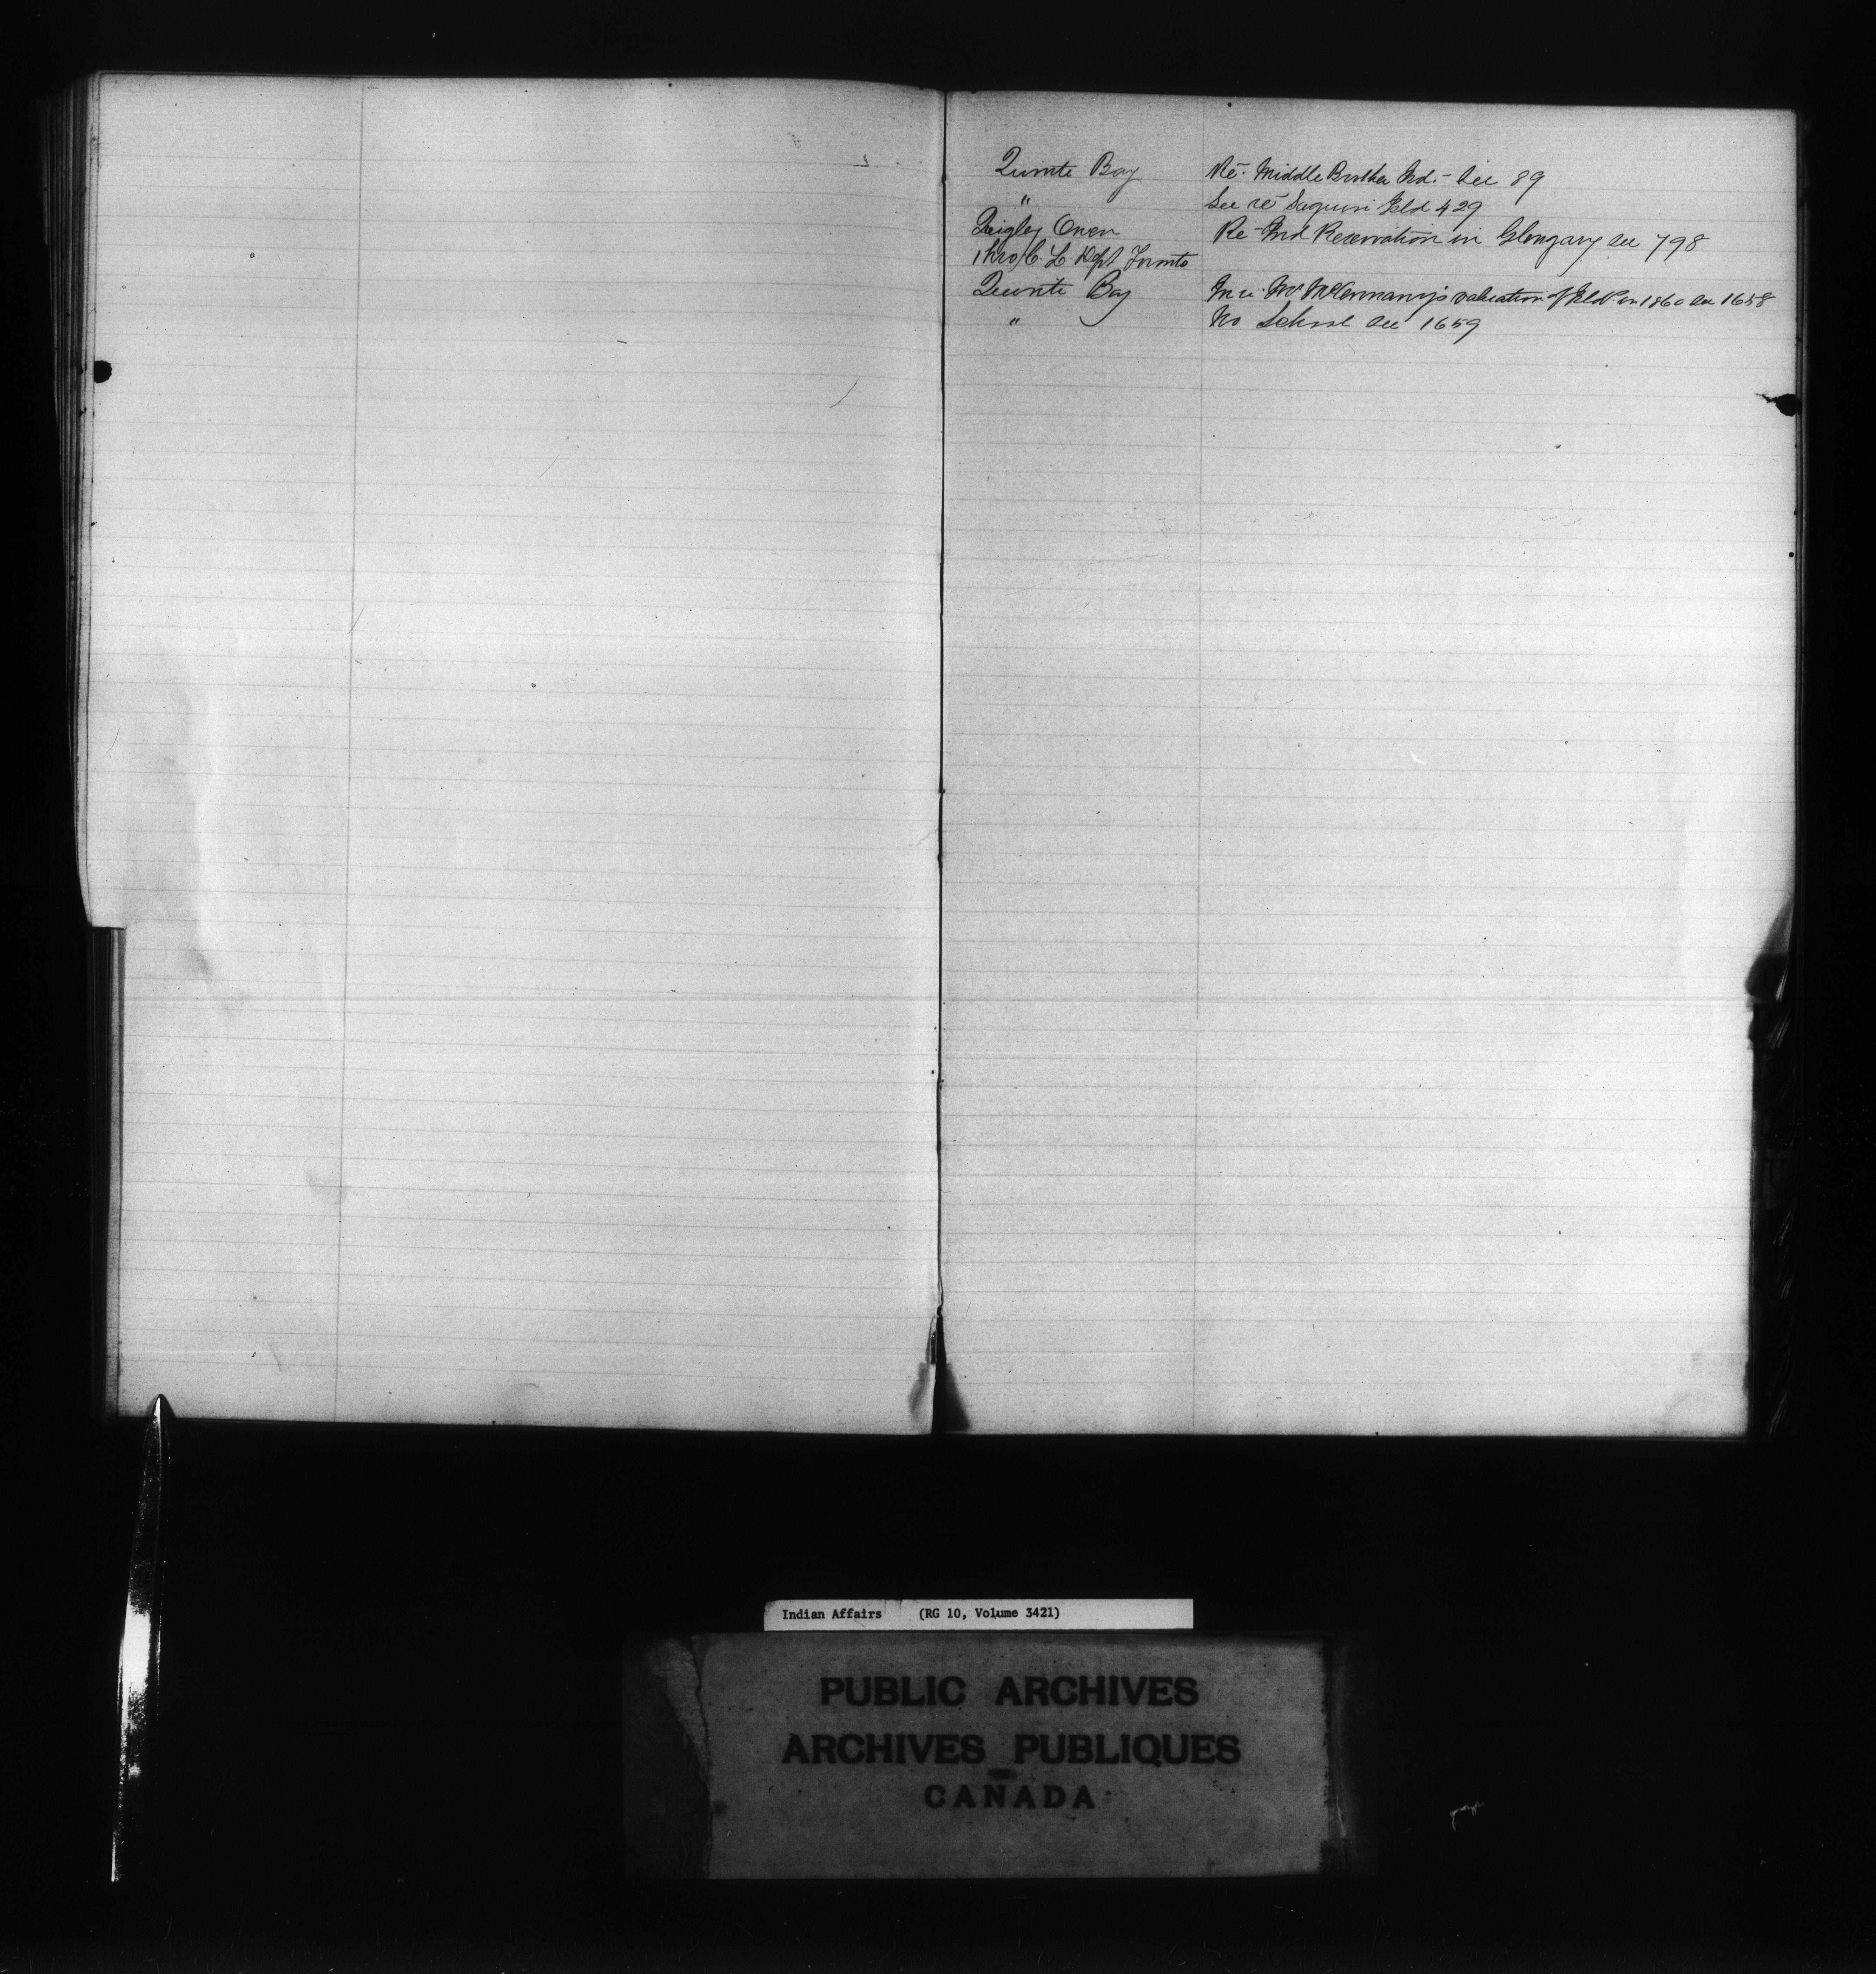 Quinte Bay Re- Middle Brother Ind.- See 89
" See re Saguin Isld 429
Quigley Owen Re- Ind Reservation in Glengary See 798
thro' C. L. Dept Toronto
Quinte Bay valuation of Isld in 1860 See 1658
" No School See 1659
Indian Affairs (RG 10, Volume 3421)
PUBLIC ARCHIVES
ARCHIVES PUBLIQUES
CANADA